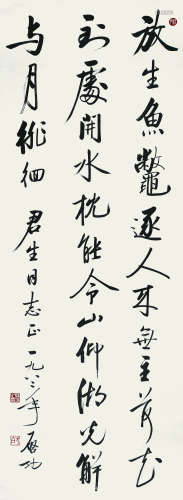 放生魚鱉逐人来無主荷花
到處開水枕能令山仰湖光解
与月徘徊 君生同志正 一九八三年 启功